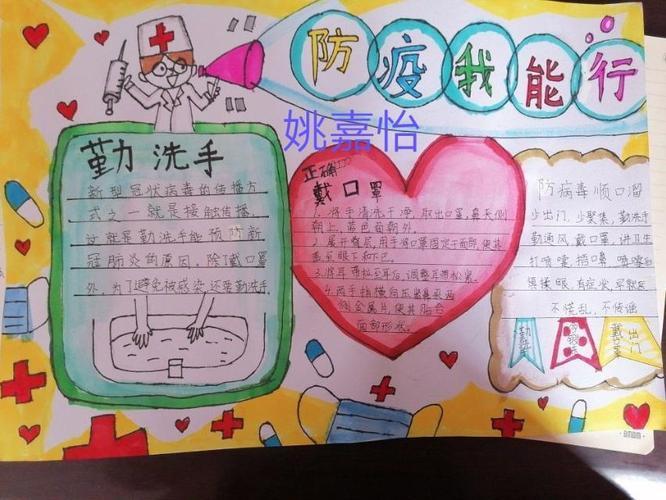 防疫我能行
姚嘉怡
勤洗手
新型冠状病毒的传播方
式之一就是接触传播,
这就是勤洗手能预防新
冠肺炎的原因,除了戴口罩
外,为了避免被感染,还要勤洗手
正确
戴口罩
1.将手清洗干净,取出口罩,鼻夹侧
朝上,蓝色面朝外。
2.展开叠层,用手将口罩固定于面部,使其
盖至眼下和下巴
3.将耳带拉至耳后,调整耳带松紧。
4.两手指横向压出鼻夹两
侧金属片,使其贴合
面部形状。
防病毒顺口溜
少出门,少聚集,勤洗手
勤通风,戴口罩,讲卫生
打喷嚏,捂口鼻,喷嚏
揉眼,有症状,早就医
不慌乱,不传谣
勤
出门
戴